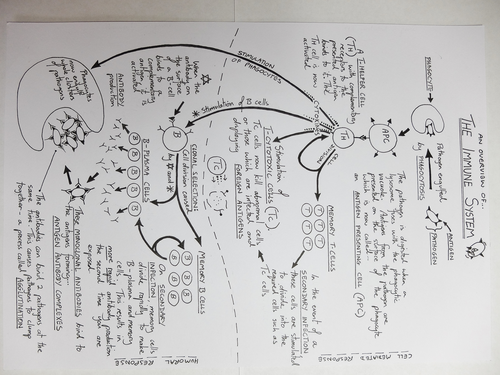 AN OVERVIEW OF...
THE IMMUNE SYSTEM
PHAGOCYTE
Pathogen engulfed
by PHAGOCYTOSIS
ANTIGEN
PATHOGEN
The pathogen is digested when a
lysosome fuses with the phagocytic
vacuole. Antigens from the pathogen are
presented on the surface of the phagocyte
which is now called...
an ANTIGEN PRESENTING CELL (APC)
APC
A T-HELPER CELL
(TH) with complementary
receptor to the
presented antigen
binds to it. The
TH cell is now
activated
TH
CELL DIVISION
MEMORY T-CELLS
T T T
T T T
In the event of a
SECONDARY INFECTION
these cells are stimulated
to divide into the
required cells such as
TC cells
CELL MEDIATED RESPONSE
CYTOKINES
STIMULATION
OF PHAGOCYTES
Stimulation of B cells
Stimulation of
T-CYTOTOXIC CELLS (TC)
TC cells now kill abnormal cells
or those which are infected and
displaying
FOREIGN ANTIGENS
TC
When the
antibody on
the surface
of a B-cell
binds to a
complementary
antigen, it is
activated
B
CLONAL SELECTION
Cell division caused
by
MEMORY B CELLS
B B B
B B B
HUMORAL RESPONSE
On SECONDARY
INFECTION, memory cells
divide rapidly to make
B-plasma and memory
cells. This results in
more rapid antibody production
the second time you are
exposed
B-PLASMA CELLS
B B B B B
ANTIBODY
production
These MONOCLONAL ANTIBODIES bind to
the antigens forming...
ANTIGEN ANTIBODY COMPLEXES
Phagocytes
now engulf
whole clusters
of pathogens
The antibodies can bind 2 pathogens at the
same time. This causes pathogens to clump
together - a process called AGGLUTINATION